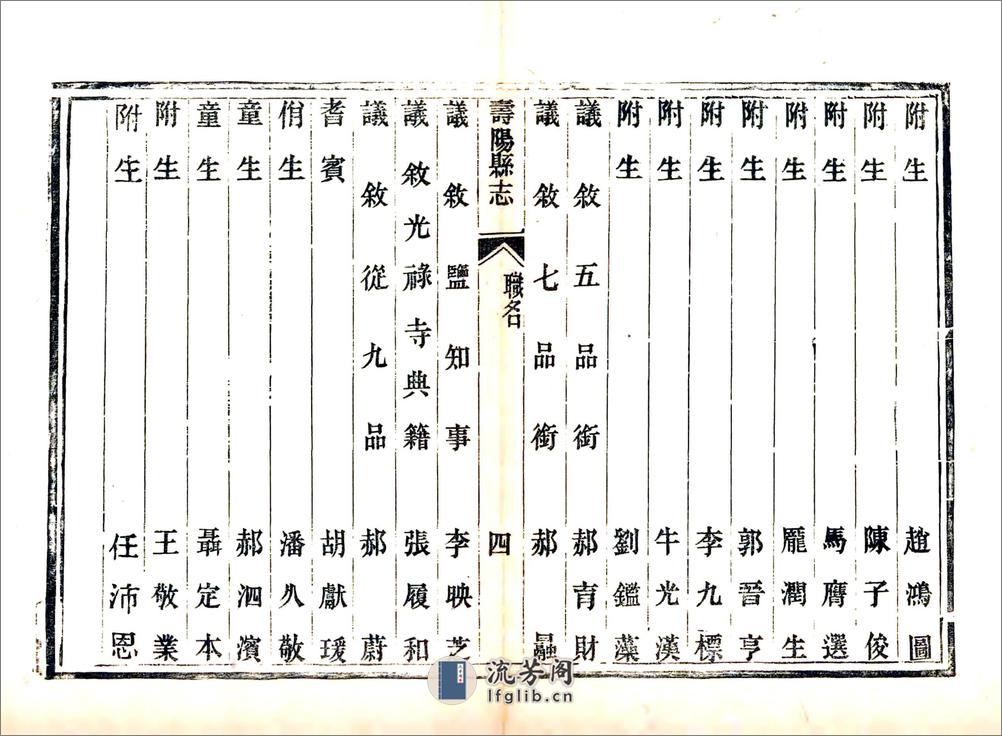 附生 趙鴻圖
附生 陳子俊
附生 馬膺選
附生 龎潤生
附生 郭晉亨
附生 李九標
附生 牛光漢
附生 劉鑑藻
議敘五品銜 郝育財
議敘七品銜 郝
壽陽縣志 職名 四
議敘鹽知事 李映芝
議敘光祿寺典籍 張履和
議敘從九品 郝蔚
耆賓 胡獻瑗
佾生 潘久敬
童生 郝泗濱
童生 聶定本
附生 王敬業
附生 任沛恩
流芳阁
lfglib.cn